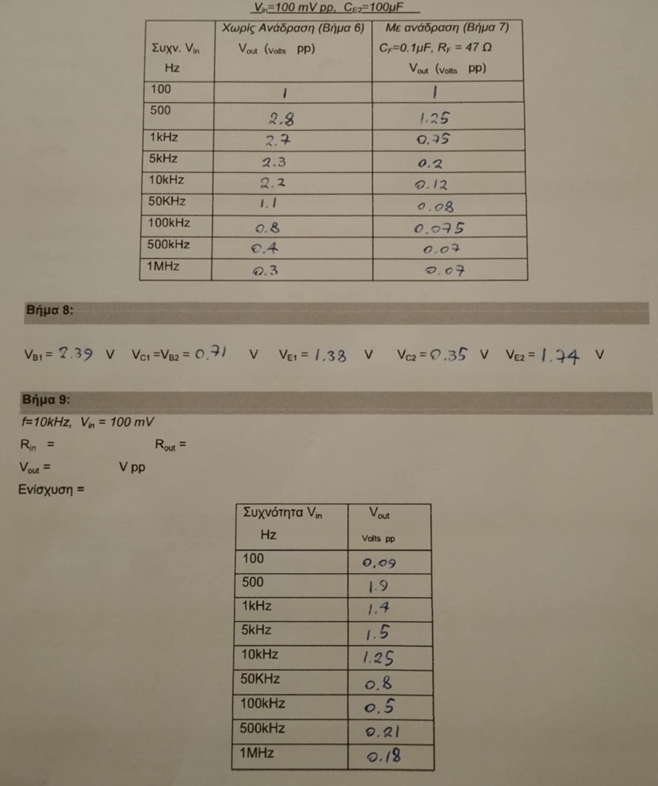 Vin=100 mV pp, CE2=100μF
Χωρίς Ανάδραση (Βήμα 6) Με ανάδραση (Βήμα 7)
Συχν. Vin Vout (Volts pp) CF=0.1μF, RF = 47 Ω
Hz Vout (Volts pp)
100 1 1
500 2.8 1.25
1kHz 2.7 0.75
5kHz 2.3 0.2
10kHz 2.2 0.12
50KHz 1.1 0.08
100kHz 0.8 0.075
500kHz 0.4 0.07
1MHz 0.3 0.07
Βήμα 8:
VB1 = 2.39 V VC1 =VB2 = 0.71 V VE1 = 1.38 V VC2 = 0.35 V VE2 = 1.74 V
Βήμα 9:
f=10kHz, Vin = 100 mV
Rin = Rout =
Vout = V pp
Ενίσχυση =
Συχνότητα Vin Vout
Hz Volts pp
100 0.09
500 1.9
1kHz 1.4
5kHz 1.5
10kHz 1.25
50KHz 0.8
100kHz 0.5
500kHz 0.21
1MHz 0.18